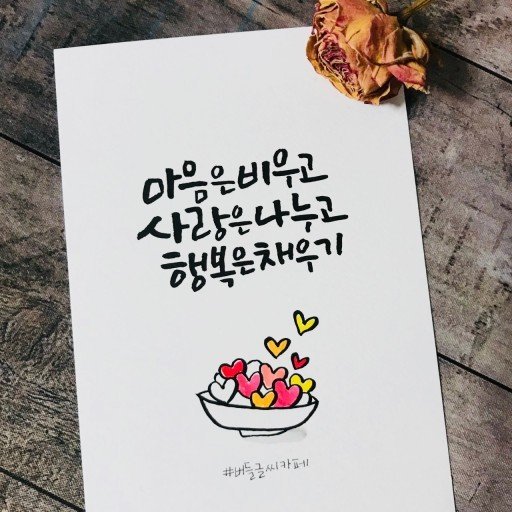 마음은 비우고
사랑은 나누고
행복은 채우기
#버들글씨카페